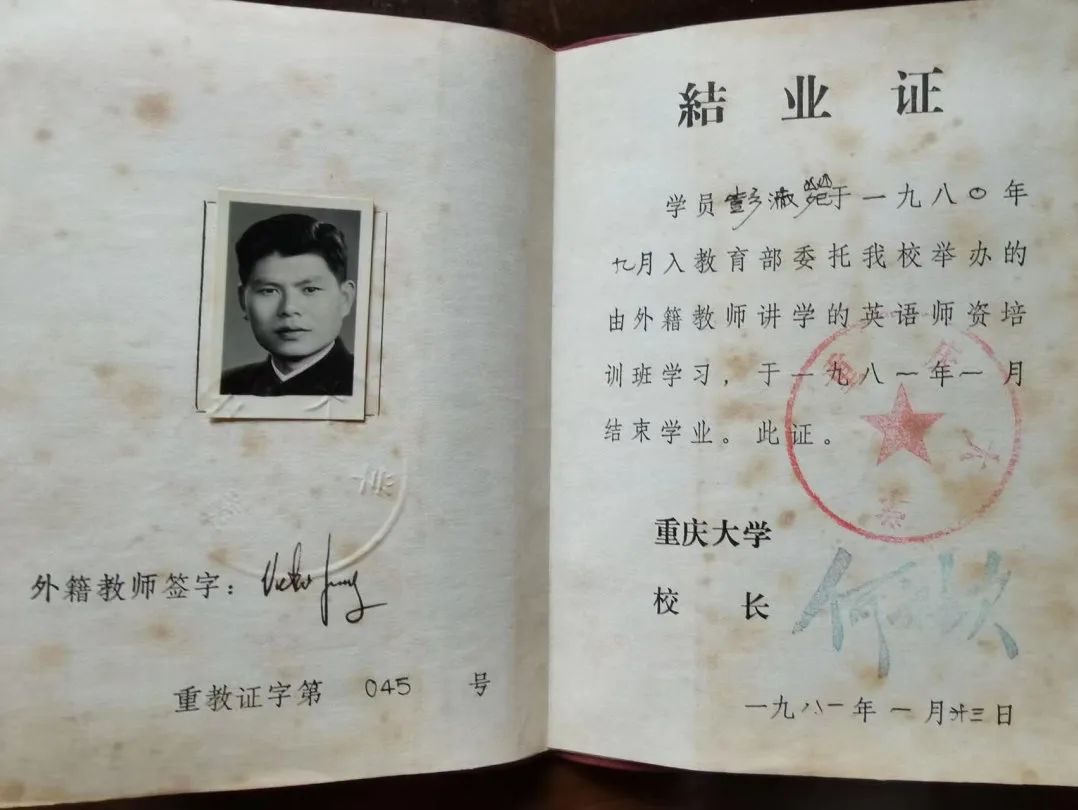 外籍教师签字：
重教证字第 045 号
結业证
学员彭淑于一九八〇年
九月入教育部委托我校举办的
由外籍教师讲学的英语师资培
训班学习，于一九八一年一月
结束学业。此证。
重庆大学
校长
一九八一年一月廿三日